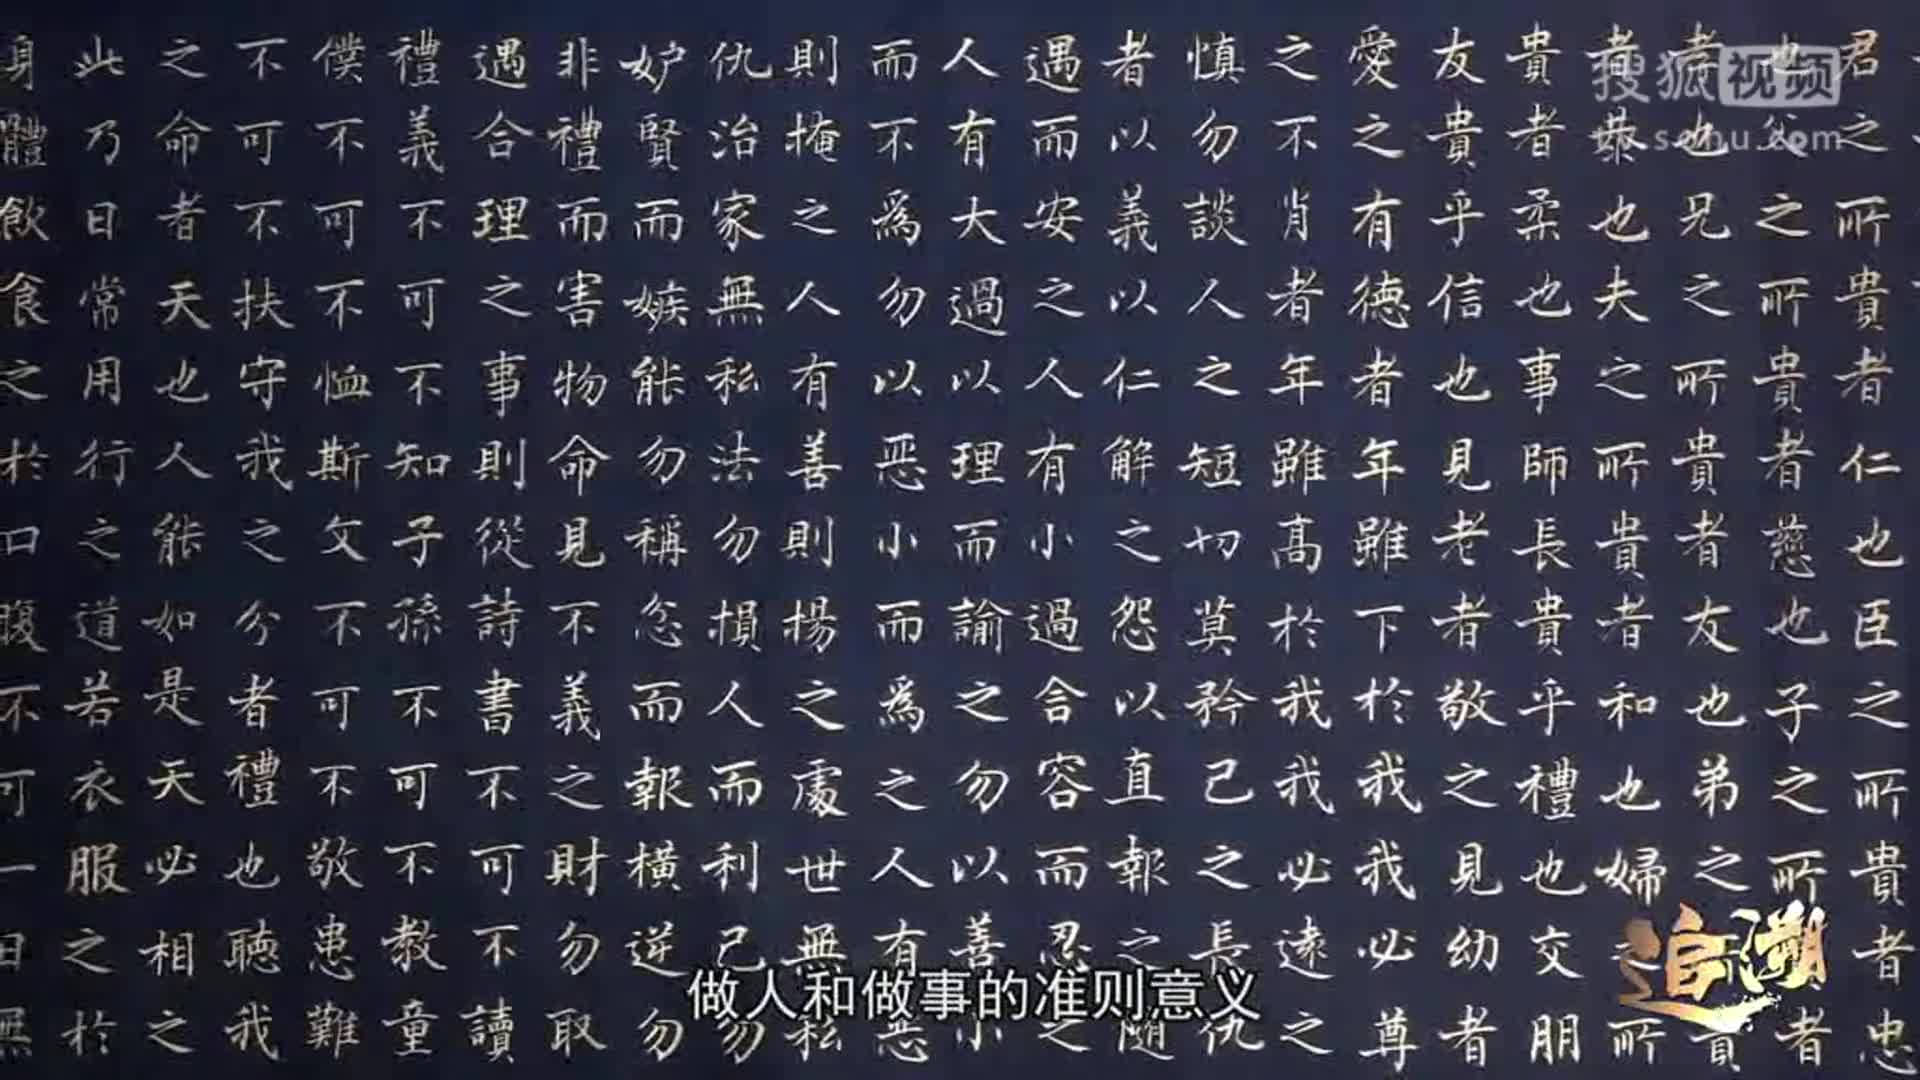 君之所貴者仁也臣之所貴者忠
也父之所貴者慈也子之所貴者
孝也兄之所貴者友也弟之所貴
者恭也夫之所貴者和也婦之所
貴者柔也事師長貴乎禮也交朋
友貴乎信也見老者敬之見幼者
愛之有德者年雖下於我我必尊
之不肖者年雖高於我我必遠之
慎勿談人之短切莫矜己之長仇
者以義以仁解之怨以直報之隨
遇而安之人有小過含容而忍之
人有大過以理而諭之勿以善小
而不為勿以惡小而為之人有惡
則掩之人有善則揚之處世無私
仇治家無私法勿損人而利己勿
妒賢而嫉能勿稱忿而報橫逆勿
非禮而害物命見不義之財勿取
遇合理之事則從詩書不可不讀
禮義不可不知子孫不可不教童
僕不可不恤斯文不可不敬患難
不可不扶守我之分者禮也聽我
之命者天也人能如是天必相之
此乃日常用行之道若衣服之於
身體飲食之於口腹不可一日無
搜狐视频
tv.sohu.com
做人和做事的准则意义
追溯